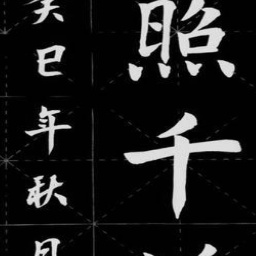 照千
癸巳年秋月